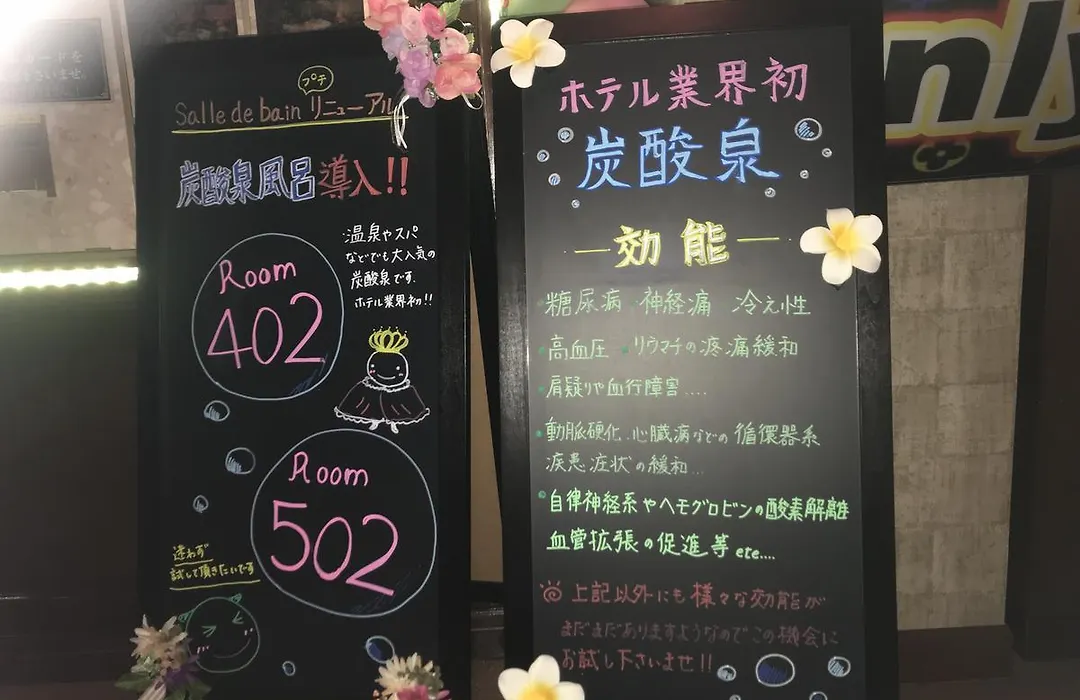 プチ
Salle de bain リニューアル
炭酸泉風呂導入!!
温泉やスパ
などでも大人気の
炭酸泉です。
ホテル業界初!!
Room
402
Room
502
迷わず
試して頂きたいです
ホテル業界初
炭酸泉
ー効能ー
・糖尿病 神経痛 冷え性
・高血圧 ・リウマチの疼痛緩和
・肩凝りや血行障害....
・動脈硬化.心臓病などの循環器系
疾患症状の緩和...
・自律神経系やヘモグロビンの酸素解離
血管拡張の促進等etc....
上記以外にも様々な効能が
まだまだありますようなのでこの機会に
お試し下さいませ!!
nly